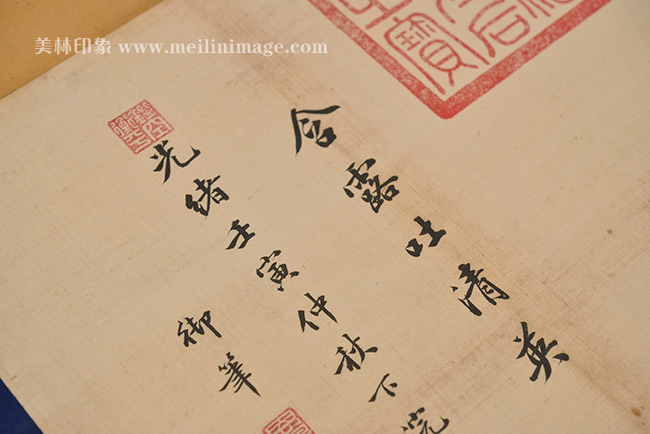 美林印象 www.meilinimage.com
含露吐清英
光緒壬寅仲秋下浣
御筆